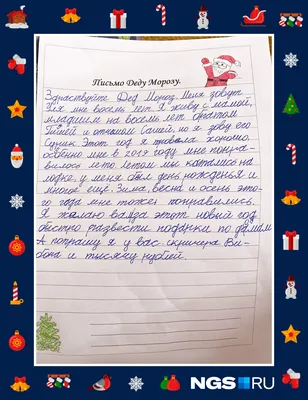 Письмо Деду Морозу.
Здраствуйте Дед Мороз. Меня зовут
мне восемь лет. Я живу с мамой,
младшим на восемь лет братом
и отчимом Сашей, но я зову его
Этот год я провела хорошо.
особенно мне в 2019 году мне понра-
вилось лето летом мы катались на
лодке, у меня был день рожденья и
многое ещё. Зима, весна и осень это-
го года мне тоже понравились.
Я желаю вам в этот новый год
быстро развести подарки по домам.
А попрошу я у вас скринера Ви-
бона и тысячу рублей.
NGS RU